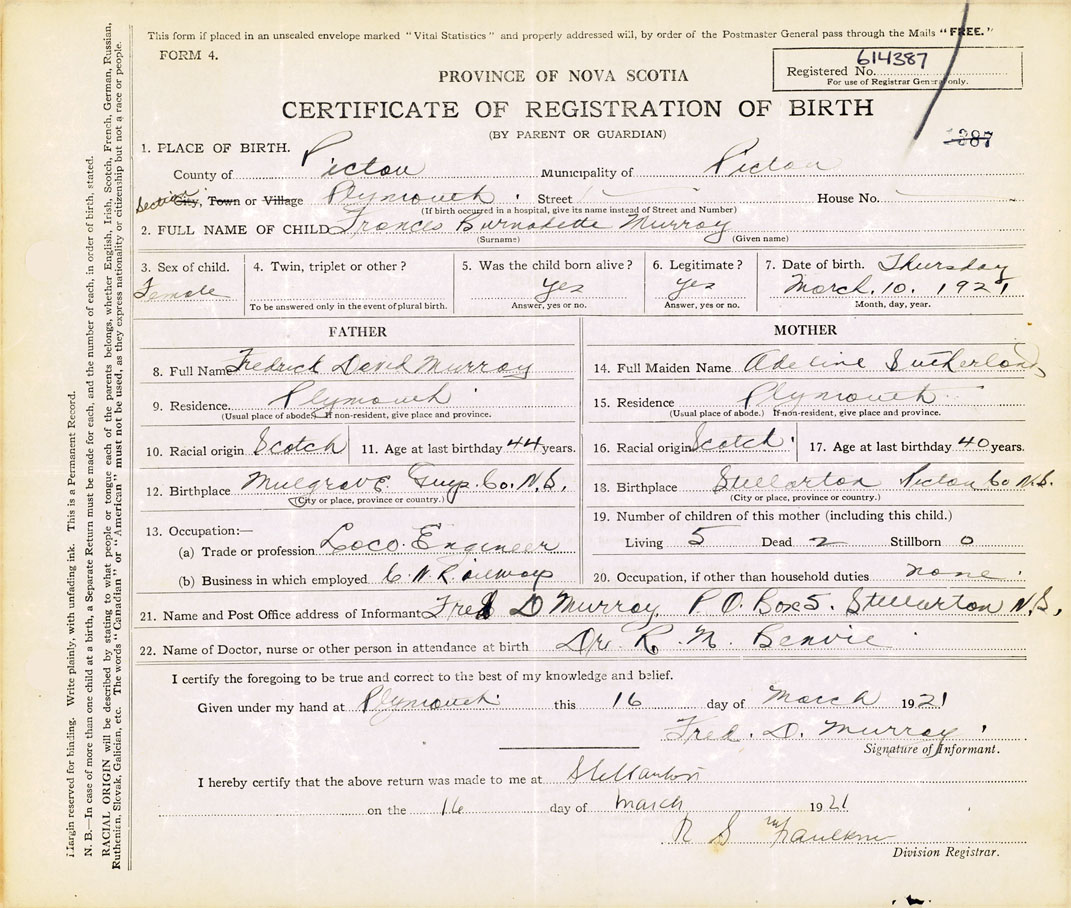 This form if placed in an unsealed envelope marked "Vital Statistics" and properly addressed will, by order of the Postmaster General pass through the Mails "FREE."
FORM 4.
614387
Registered No.
For use of Registrar General only.
PROVINCE OF NOVA SCOTIA
CERTIFICATE OF REGISTRATION OF BIRTH
(BY PARENT OR GUARDIAN)
1. PLACE OF BIRTH.
County of Pictou Municipality of Pictou
Section City, Town or Village Plymouth Street House No.
(If birth occurred in a hospital, give its name instead of Street and Number)
2. FULL NAME OF CHILD Frances Burnadette Murray
(Surname) (Given name)
3. Sex of child. 4. Twin, triplet or other? 5. Was the child born alive? 6. Legitimate? 7. Date of birth. Thursday
Female yes yes March. 10. 1921
To be answered only in the event of plural birth. Answer, yes or no. Answer, yes or no. Month, day, year.
FATHER
8. Full Name Fredrick David Murray
9. Residence. Plymouth
(Usual place of abode.) If non-resident, give place and province.
10. Racial origin Scotch 11. Age at last birthday 44 years.
12. Birthplace Mulgrave Guys. Co. N.S.
(City or place, province or country.)
13. Occupation:—
(a) Trade or profession Loco. Engineer
(b) Business in which employed C. N. Railways
MOTHER
14. Full Maiden Name Adeline Sutherland
15. Residence Plymouth
(Usual place of abode.) If non-resident, give place and province.
16. Racial origin Scotch 17. Age at last birthday 40 years.
18. Birthplace Stellarton Pictou Co N.S.
(City or place, province or country.)
19. Number of children of this mother (including this child.)
Living 5 Dead 2 Stillborn 0
20. Occupation, if other than household duties none
21. Name and Post Office address of Informant Fred D Murray P O. Box 5. Stellarton N.S.
22. Name of Doctor, nurse or other person in attendance at birth Dr. R. N. Benvie
I certify the foregoing to be true and correct to the best of my knowledge and belief.
Given under my hand at Plymouth this 16 day of March 1921
Fred. D. Murray
Signature of Informant.
I hereby certify that the above return was made to me at Stellarton
on the 16 day of March 1921
R S McFaulkner
Division Registrar.
Margin reserved for binding. Write plainly, with unfading ink. This is a Permanent Record.
N. B.—In case of more than one child at a birth, a Separate Return must be made for each, and the number of each, in order of birth, stated.
RACIAL ORIGIN will be described by stating to what people or tongue each of the parents belongs, whether English, Irish, Scotch, French, German, Russian,
Ruthenian, Slovak, Galician, etc. The words "Canadian" or "American" must not be used, as they express nationality or citizenship but not a race or people.